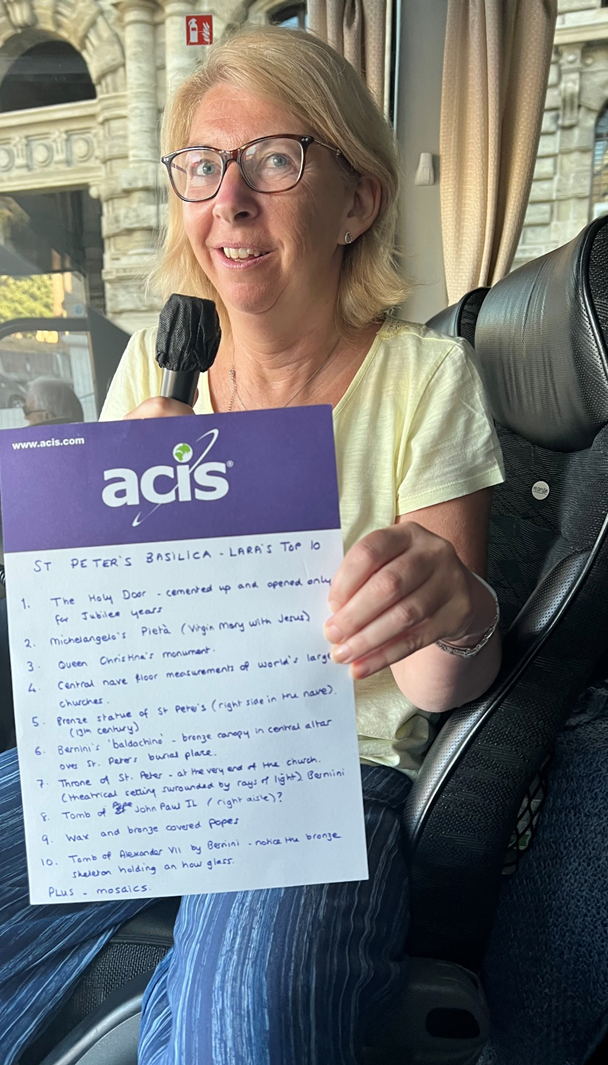 www.acis.com
acis®
ST PETER'S BASILICA - LARA'S TOP 10
1. The Holy Door - cemented up and opened only
for Jubilee years
2. Michelangelo's Pietà (Virgin Mary with Jesus)
3. Queen Christina's monument.
4. Central nave floor measurements of world's large
churches.
5. Bronze statue of St Peter's (right side in the nave).
(13th century)
6. Bernini's 'baldachino' - bronze canopy in central altar
over St. Peter's burial place.
7. Throne of St. Peter - at the very end of the church.
(theatrical setting surrounded by rays of light) Bernini
8. Tomb of Pope John Paul II (right aisle)?
9. Wax and bronze covered popes
10. Tomb of Alexander VII by Bernini - notice the bronze
skeleton holding an hour glass.
PLUS - mosaics.